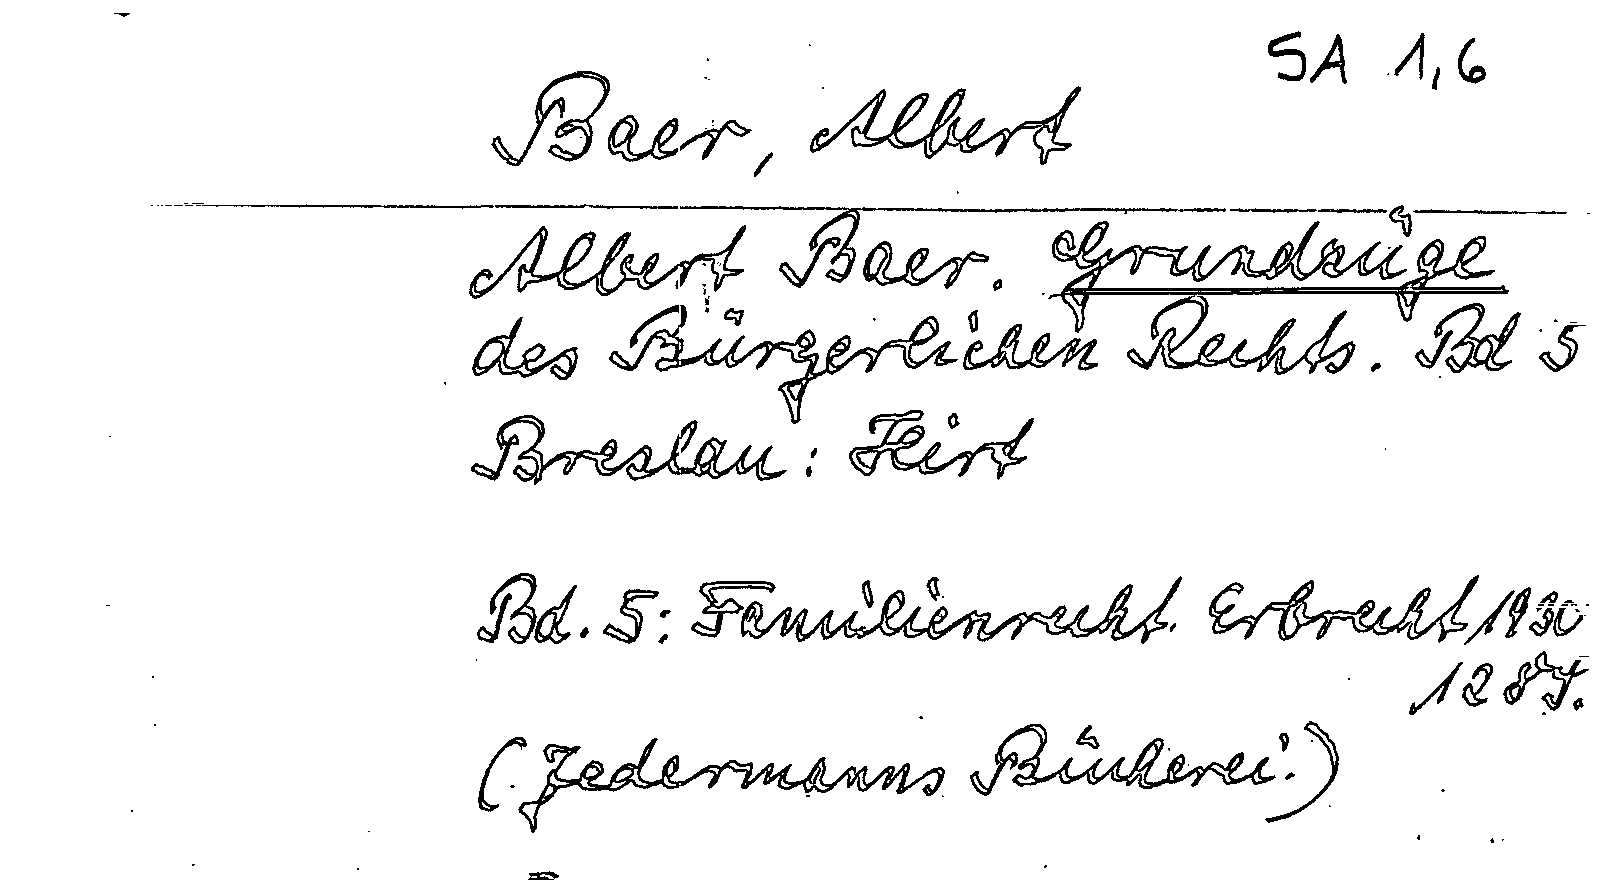 SA 1,6
Baer, Albert
Albert Baer. Grundzüge
des Bürgerlichen Rechts. Bd 5
Breslau: Hirt
Bd. 5: Familienrecht. Erbrecht, 1930
128 S.
(Jedermanns Bücherei.)